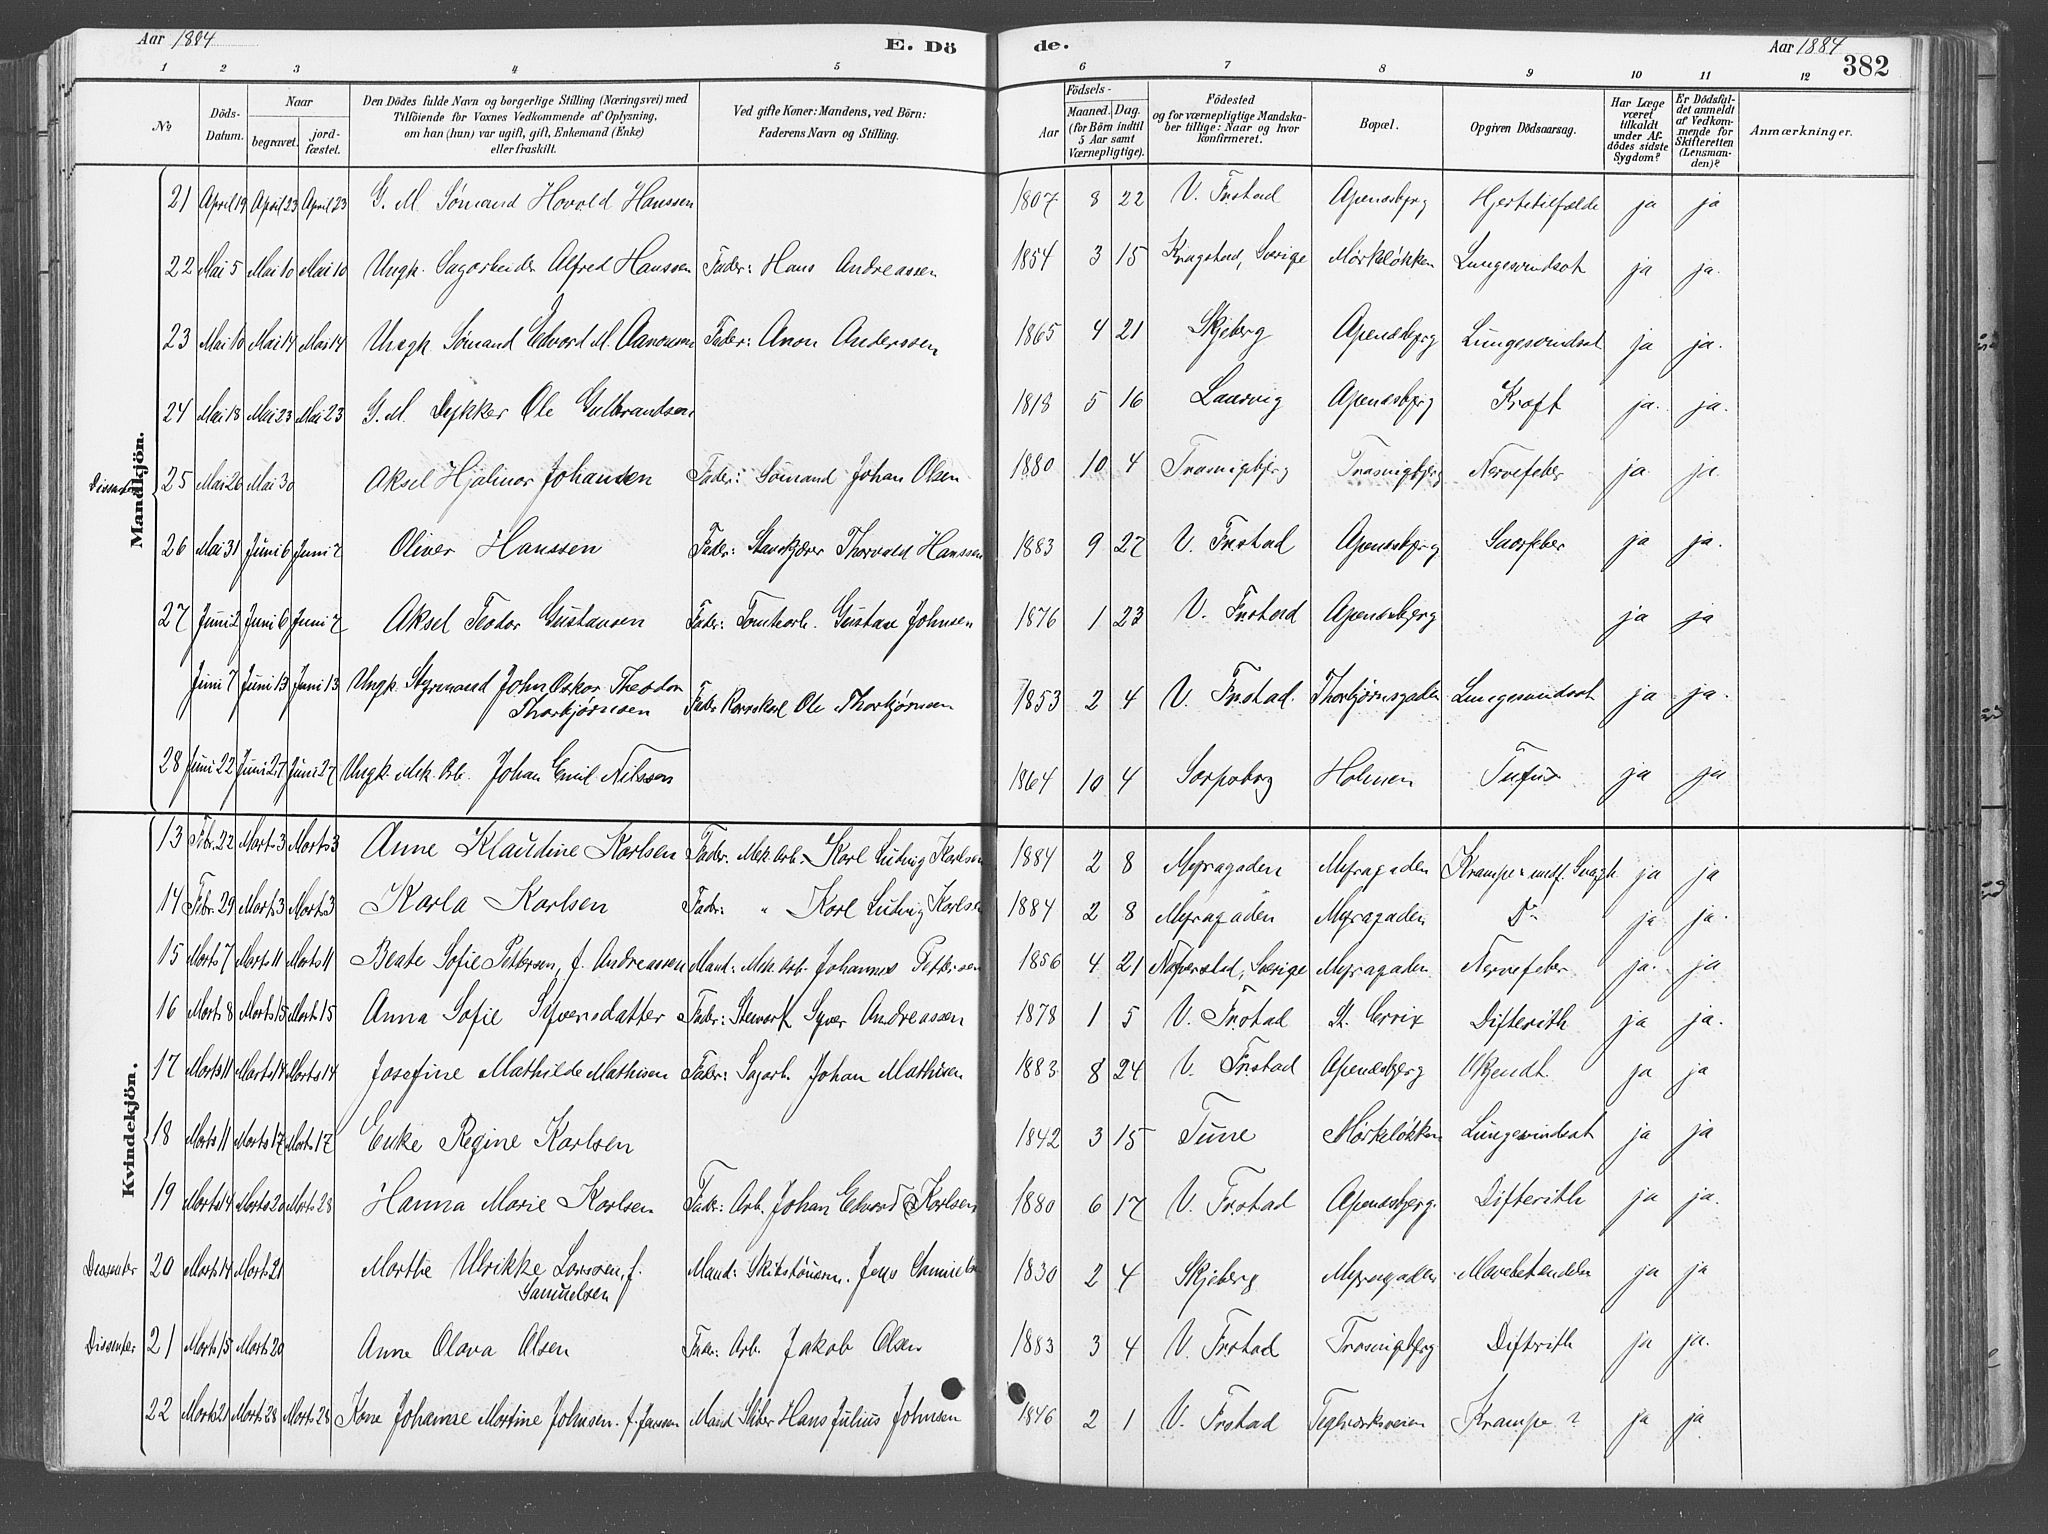 Aar 1884 E. Dö de. Aar 1884 382
1 2 3 4 5 6 7 8 9 10 11 12
№ Döds-Datum. Naar begravet. jord-fæstet. Den Dödes fulde Navn og borgerlige Stilling (Næringsvei) med Tilföiende for Voxnes Vedkommende af Oplysning, om han (hun) var ugift, gift, Enkemand (Enke) eller fraskilt. Ved gifte Koner: Mandens, ved Börn: Faderens Navn og Stilling. Födsels- Aar Maaned. Dag. (for Börn indtil 5 Aar samt Værnepligtige). Födested og for værnepligtige Mandskaber tillige: Naar og hvor konfirmeret. Bopæl. Opgiven Dödsaarsag. Har Læge været tilkaldt under Afdödes sidste Sygdom? Er Dödsfaldet anmeldt af Vedkommende for Skifteretten (Lensmanden)? Anmærkninger.
Mandkjön.
21 April 19 April 23 April 23 G. M. Sømand Hovold Hanssen 1807 8 22 V. Frstad Apenæsbjerg Hjertetilfælde ja ja
22 Mai 5 Mai 10 Mai 10 Ungk. Sagarbeider Alfred Hanssen Fader: Hans Andreassen 1854 3 15 Kragstad, Sverige Mørkeløkken Lungesvindsot ja ja.
23 Mai 10 Mai 14 Mai 14 Ungk Sømand Edvard M. Aanonsen Fader: Anon Anderssen 1865 4 21 Skjeberg Apenæsbjerg Lungesvindsot ja ja.
24 Mai 18 Mai 23 Mai 23 G. M. Dykker Ole Gulbrandsen 1818 5 16 Laurvig Apenæsbjerg Kræft ja. ja.
Dissenter 25 Mai 26 Mai 30 Aksel Hjalmar Johansen Fader: Sømand Johan Olsen 1880 10 4 Trosvigbjerg Trosvigbjerg Nervefeber ja ja.
26 Mai 31 Juni 6 Juni 7 Oliver Hanssen Fader: Stavskjærer Thorvald Hanssen 1883 9 27 V. Frstad Apenæsbjerg Saarfeber ja ja.
27 Juni 2 Juni 6 Juni 7 Aksel Teodor Gustavsen Fader: Tomtearb. Gustav Johnsen 1876 1 23 V. Frstad Apenæsbjerg ja ja
Juni 7 Juni 13 Juni 13 Ungk. Styrmand John Oskar Theodor Thorbjørnsen Fader Ole Thorbjørnsen 1853 2 4 V. Frstad. Thorbjørnsgaden Lungesvindsot ja ja.
28 Juni 22 Juni 27 Juni 27 Ungk. Mek. Arb. Johan Emil Nilssen 1864 10 4 Sarpsborg Holmen Tyfus ja ja
Kvindekjön.
13 Febr. 22 Marts 3 Marts 3 Anne Klaudine Karlsen Fader: Mek. Arb. Karl Ludvig Karlsen 1884 2 8 Myragaden Myragaden Krampe & medf. Svagh. ja ja
14 Febr. 29 Marts 3 Marts 3 Karla Karlsen Fader: " Karl Ludvig Karlsen 1884 2 8 Myragaden Myragaden Do ja ja.
15 Marts 7 Marts 11 Marts 11 Beate Sofie Pettersen, f. Andreassen Mand: Mek. Arb. Johannes Pettersen 1856 4 21 Naverstad, Sverige Myragaden Nervefeber ja. ja
16 Marts 8 Marts 15 Marts 15 Anna Sofie Syversdatter Fader: Stewart Syver Andreassen 1878 1 5 V. Frstad St. Croix Difterith ja ja.
17 Marts 11 Marts 14 Marts 14 Josefine Mathilde Mathisen Fader: Sagarb. Johan Mathisen 1883 8 24 V. Frstad Apenæsbjerg Ukjendt. ja ja
18 Marts 11 Marts 17 Marts 17 Enke Regine Karlsen 1842 3 15 Tune Mørkeløkken Lungesvindsot ja ja
19 Marts 14 Marts 20 Marts 28 Hanna Marie Karlsen Fader: Arb. Johan Edvard Karlsen 1880 6 17 V. Frstad Apenæsbjerg. Difterith ja ja.
Dissenter 20 Marts 14 Marts 21 Marthe Ulrikke Larssen, f. Samuelsen Mand: Skibstømm. Jens 1830 2 4 Skjeberg Myragaden Mavebetændelse ja ja
Dissenter 21 Marts 15 Marts 20 Anne Olava Olsen Fader: Arb. Jakob Olsen 1883 3 4 V. Frstad Trosvigbjerg Difterith ja ja.
22 Marts 21 Marts 28 Marts 28 Kone Johanne Martine Johnsen. f. Jenssen Mand Sliber Hans Julius Johnsen 1846 2 1 V. Frstad Teglværksveien Krampe? ja ja